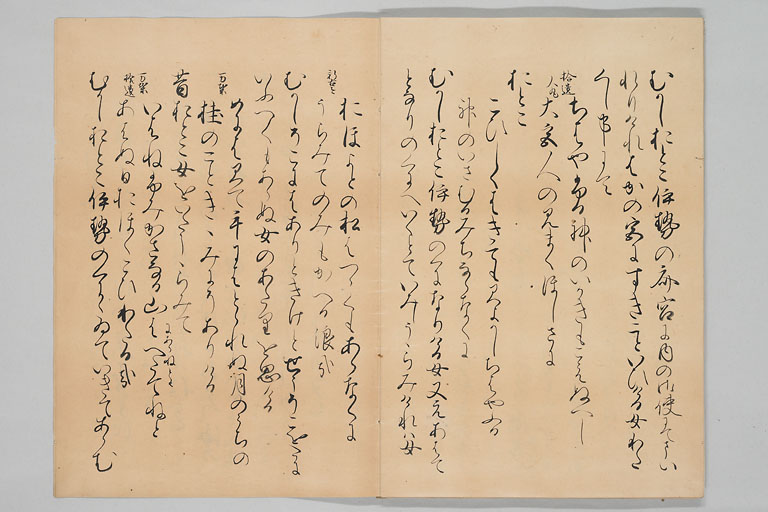 むかしおとこ伊勢の斎宮に内の御使にてまい
れりけれはかの宮にすきこといひける女わた
くし事にて
拾遺
人丸
ちはやふる神のいかきもこえぬへし
大宮人の見まくほしさに
おとこ
こひしくはきても見よかしちはやふる
神のいさむるみちならなくに
むかしおとこ伊勢のくになりける女又えあはて
となりのくにへいくとていみしううらみけれは女
おほよとの松はつらくもあらなくに
うらみてのみもかへる浪哉
むかしそこにはありときけとせうそこをたに
いふへくもあらぬ女のあたりを思ける
めには見て手にはとられぬ月のうちの
万葉
桂のこときゝみにそありける
昔おとこ女をいたううらみて
万葉
いはねふみかさなる山はへたてねと
にあらねとも
拾遺
あはぬ日おほくこひわたる哉
むかしおとこ伊勢のくにゐていきてあらむ